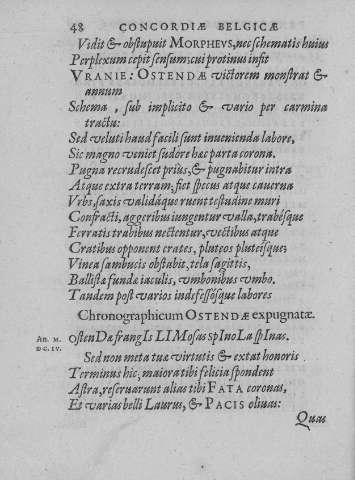 48 CONCORDIÆ BELGICÆ
Vidit & obstupuit MORPHEVS, nec schematis huius
Perplexum cepit sensum: cui protinus insit
VRANIE: OSTENDÆ victorem monstrat &
annum
Schema, sub implicito & vario per carmina
tractu:
Sed veluti haud facili sunt invenienda labore,
Sic magno veniet sudore hæc parta corona.
Pugna recrudescet priùs, & pugnabitur intra
Atque extra terram; fiet specus atque cauerna
Vrbs, saxis validáque ruent testudine muri
Confracti, aggeribus iungentur valla, trabésque
Ferratis trabibus nectentur, vectibus atque
Cratibus opponent crates, pluteos pluteísque;
Vinea sambucis obstabit, tela sagittis,
Ballistæ fundæ iaculis, vmbonibus vmbo.
Tandem post varios indefessósque labores
Chronographicum OSTENDÆ expugnatæ.
An. M. OstenDa frangIs LIMosas spInoLa spInas.
DC. IV.
Sed non meta tuæ virtutis & extat honoris
Terminus hic, maiora tibi felicia spondent
Astra, reseruarunt alias tibi FATA coronas,
Et varias belli Laurus, & PACIS oliuas:
Quas